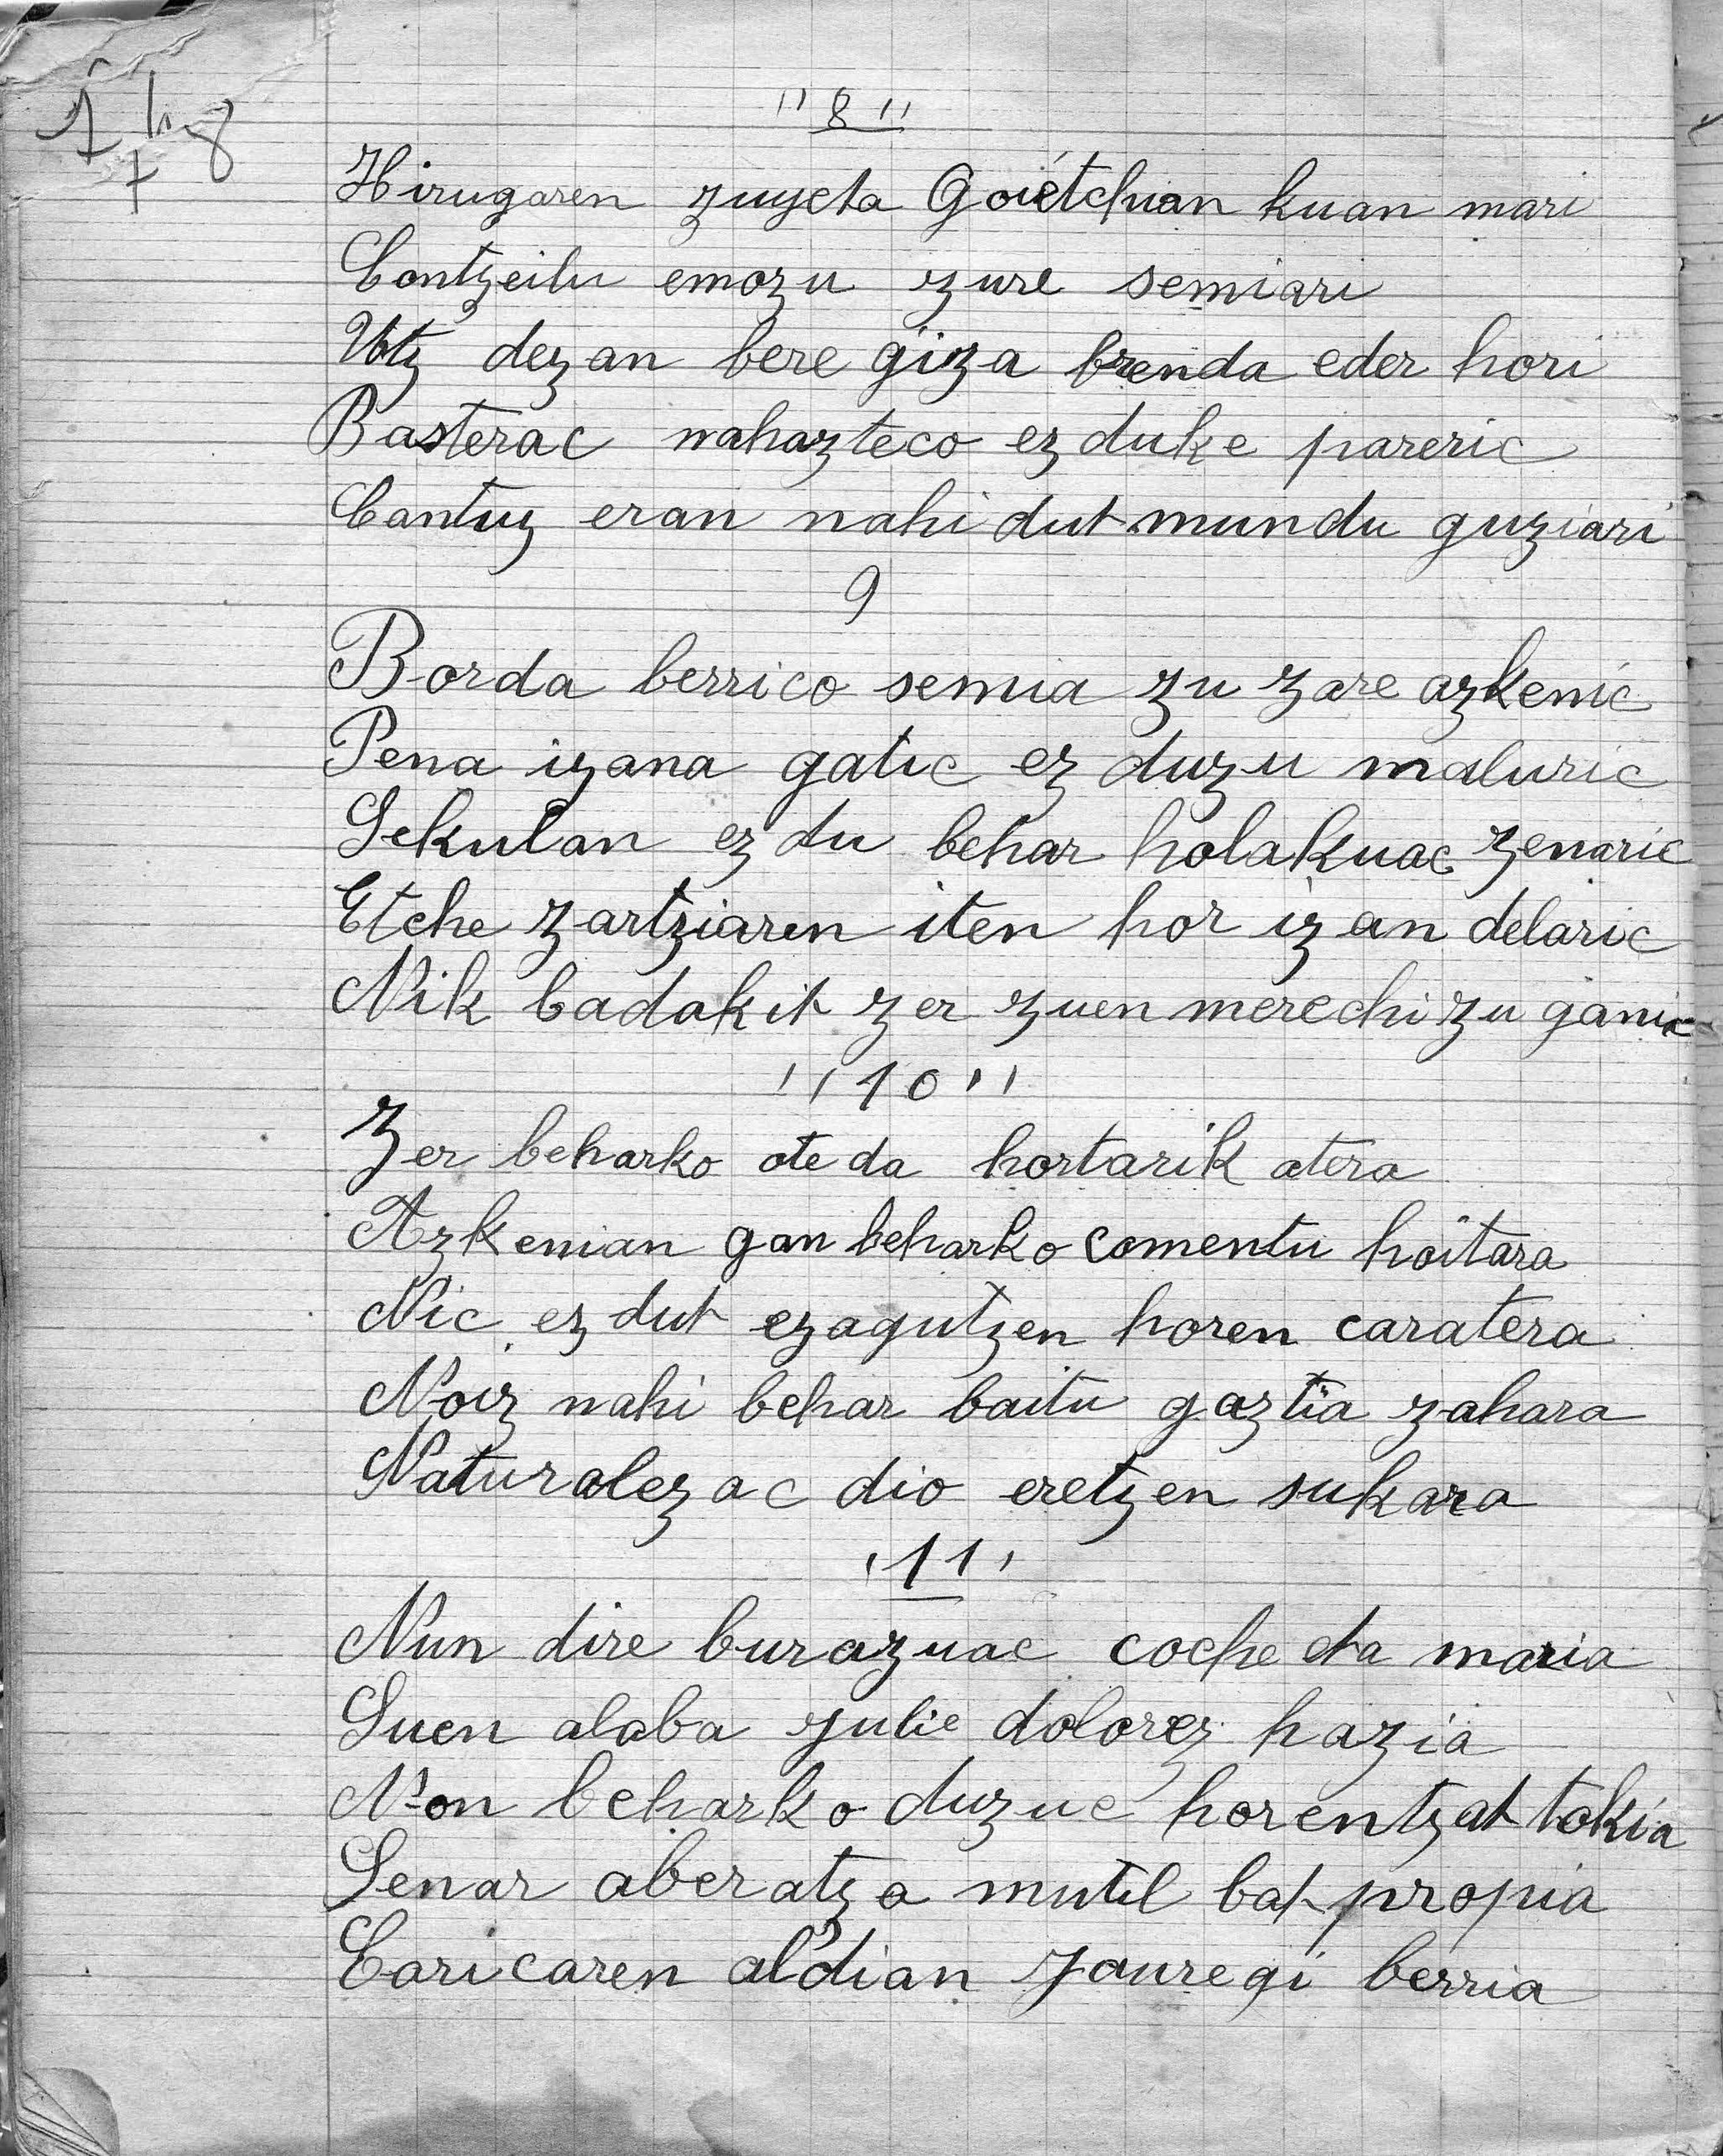 "8"
Hirugaren zuyeta Goiétchian kuan mari
Contzeilu emozu zure semiari
Utz dezan bere giza brenda eder hori
Basterac nahazteco ez duke pareric
Cantuz eran nahi dut mundu guziari
9
Borda berrico semia zu zare azkenic
Pena izana gatic ez duzu maluric
Sekulan ez du behar holakuac zenaric
Etche zartziaren iten hor izan delaric
Nik badakit zer zuen merechi zu ganic
"10"
Zer beharko ote da hortarik atera
Azkenian gan beharko comentu hoitara
Nic ez dut ezagutzen horen caratera
Noiz nahi behar baitu gaztia zahara
Naturalezac dio eretzen sukara
'11'
Nun dire burazuac coche eta maria
Suen alaba yulie dolorez hazia
Non beharko duzue horentzat tokia
Senar aberatza mutil bat propia
Caricaren aldian yauregi berria